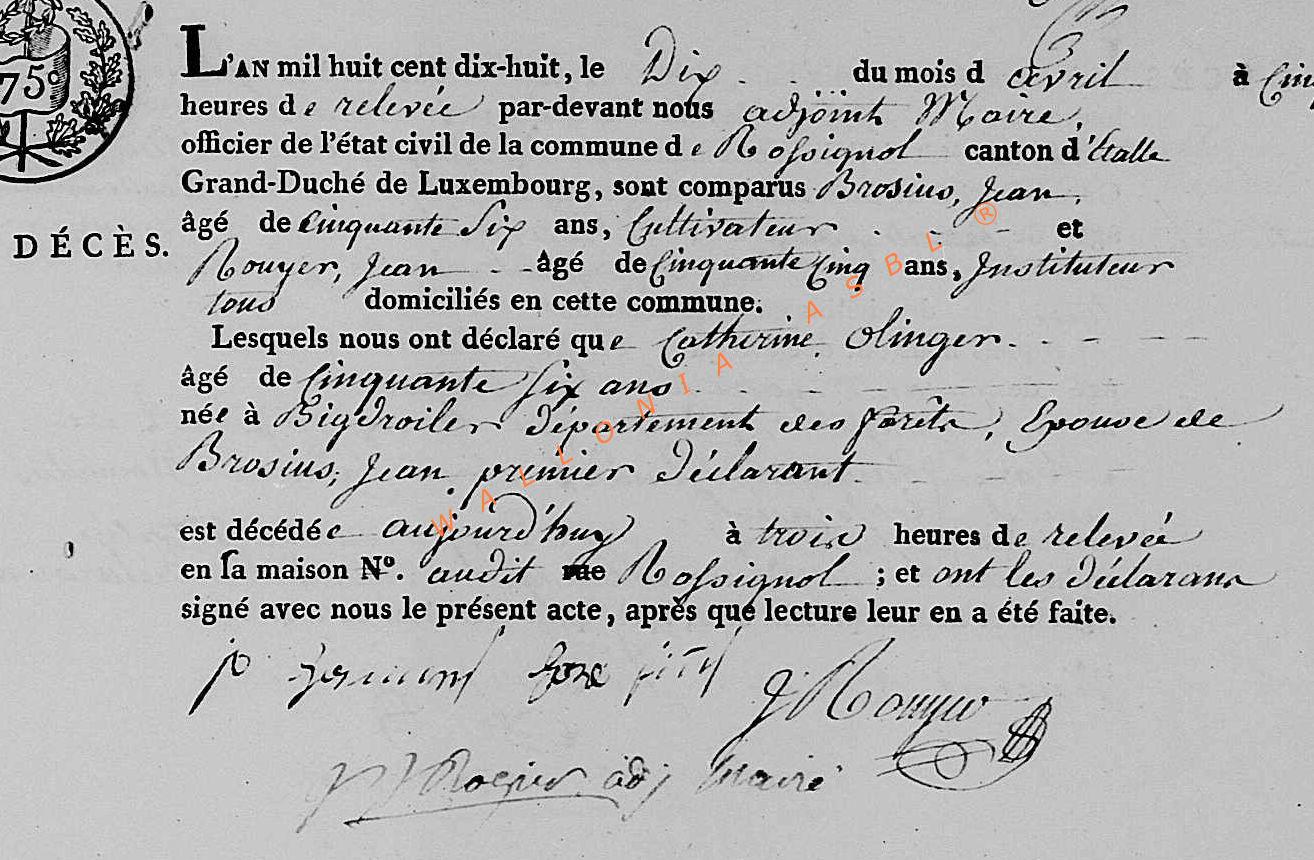 75c
L'AN mil huit cent dix-huit, le Dix du mois d avril à Cin
heures de relevée par-devant nous adjoint Maire,
officier de l'état civil de la commune de Rossignol canton d'Etalle
Grand-Duché de Luxembourg, sont comparus Brosius, Jean,
DÉCÈS.
âgé de Cinquante Six ans, Cultivateur et
Rouyer, Jean âgé de Cinquante Cinq ans, Instituteur
tous domiciliés en cette commune.
Lesquels nous ont déclaré que Catherine Olinger
âgé de Cinquante Six ans
née à Bigdroiler Département des forêts, Epouse de
Brosius, Jean premier Déclarant
est décédée aujourd'huy à trois heures de relevée
en sa maison N°. audit rue Rossignol ; et ont les Déclarans
signé avec nous le présent acte, après que lecture leur en a été faite.
J Rouyer
adj Maire
WALLONIA ASBL ®